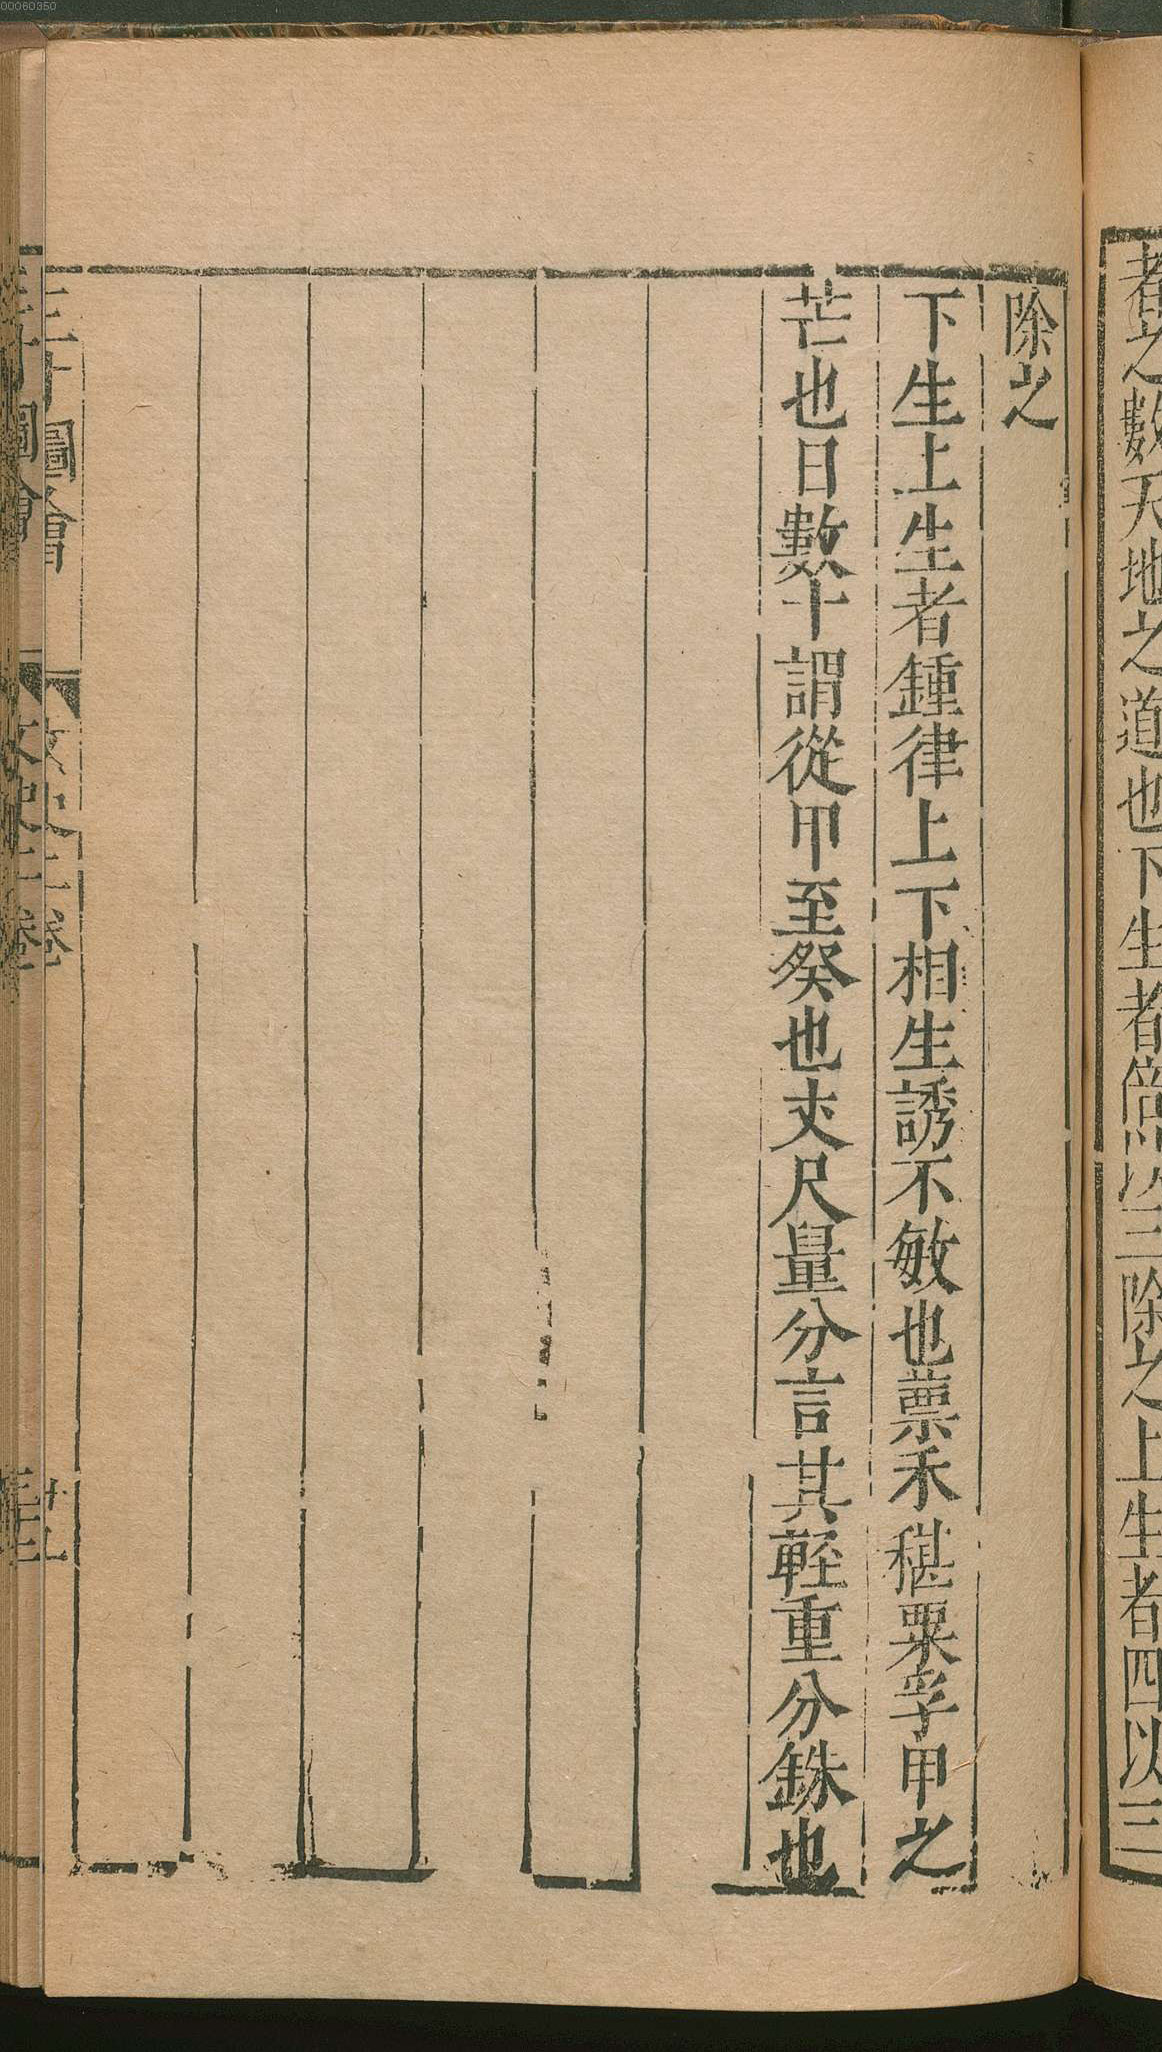 者之數天地之道也下生者倍以三除之上生者四以三
除之
下生上生者鍾律上下相生誘不敏也蔈禾穂粟孚甲之
芒也日數十謂從甲至癸也丈尺量分言其輕重分銖也
三才圖會
文史二卷
廿五
00060350